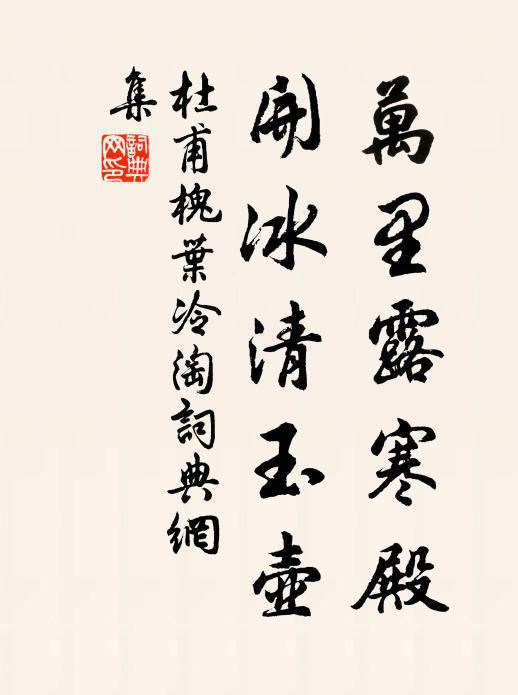 萬里露寒殿
開冰清玉壺
杜甫槐葉冷淘詞典網
集
詞典
网印